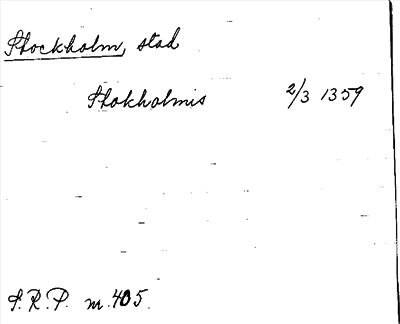 Stockholm, stad
Stokholmis 2/3 1359
S.R.P. nr. 405.